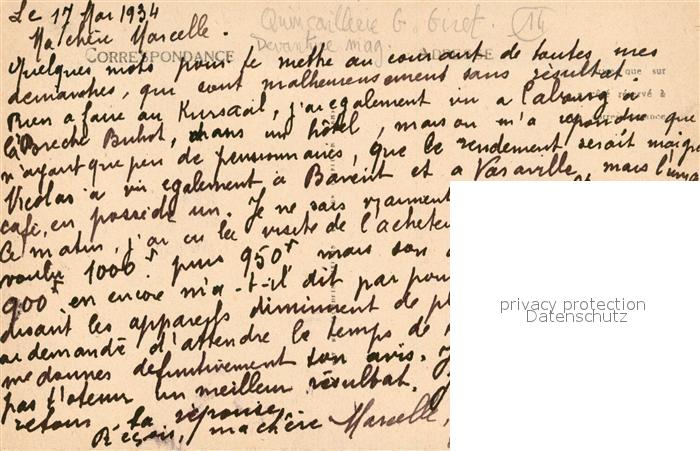 Le 17 Mai 1934
Quincaillerie G. Giret. (14)
Ma chère Marcelle.
Devanture mag.
CORRESPONDANCE
ADRESSE
Quelques mots pour te mettre au courant de toutes mes
demarches, qui sont malheureusement sans résultat.
Rien a faire au Kursaal, j'ai egalement vu a Cabourg à
la Breche Buhot, dans un hôtel, mais on m'a repondue que
n'ayant que peu de pensionnaires, que le rendement serait maigre
Nicolas a vu egalement à Bavent et a Varaville, mais l'un
café, en possède un. Je ne sais vraiment
Ce matin, j'ai eu la visite de l'acheteu
voulu 1000f puis 950f mais son
900f en encore m'a-t-il dit par pou
disant les appareils diminuent de pl
ai demandé d'attendre le temps de
me donnes definitivement ton avis. J
pas t'otenir un meilleur résultat.
retour ta reponse.
Reçois, ma chère Marcelle,
privacy protection
Datenschutz